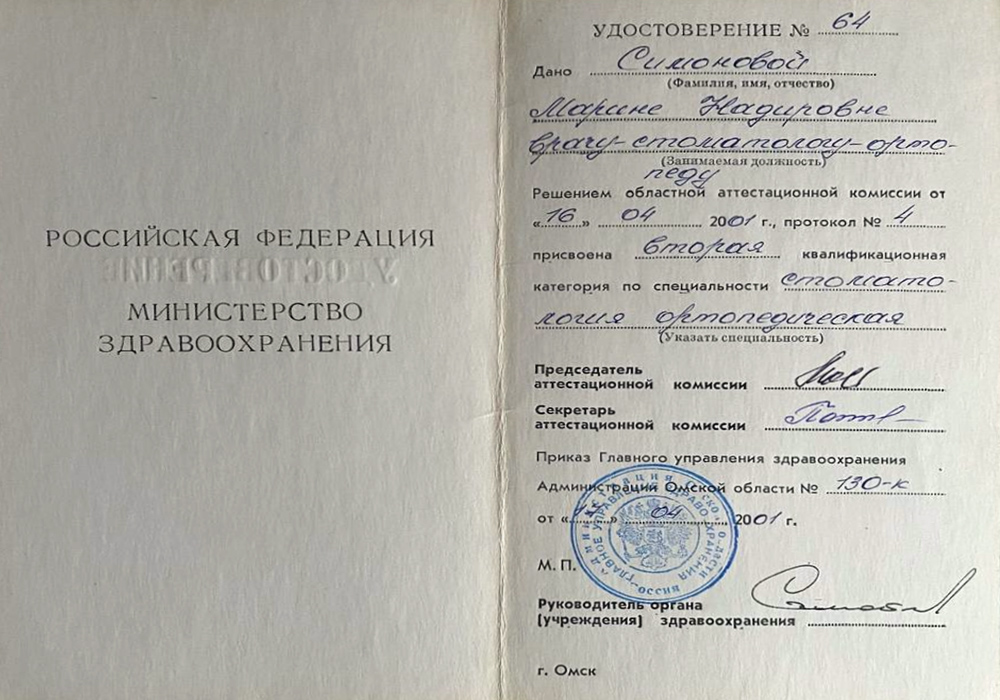 РОССИЙСКАЯ ФЕДЕРАЦИЯ
УДОСТОВЕРЕНИЕ
МИНИСТЕРСТВО
ЗДРАВООХРАНЕНИЯ
УДОСТОВЕРЕНИЕ № 64
Дано Симоновой
(Фамилия, имя, отчество)
Марине Надировне
врачу-стоматологу-орто-
(Занимаемая должность)
педу
Решением областной аттестационной комиссии от
«16» 04 2001 г., протокол № 4
присвоена вторая квалификационная
категория по специальности стомато-
логия ортопедическая
(Указать специальность)
Председатель
аттестационной комиссии
Секретарь
аттестационной комиссии
Приказ Главного управления здравоохранения
Администрации Омской области № 130-к
от « » 04 2001 г.
ГЛАВНОЕ УПРАВЛЕНИЕ ЗДРАВООХРАНЕНИЯ
М. П.
Руководитель органа
(учреждения) здравоохранения
г. Омск